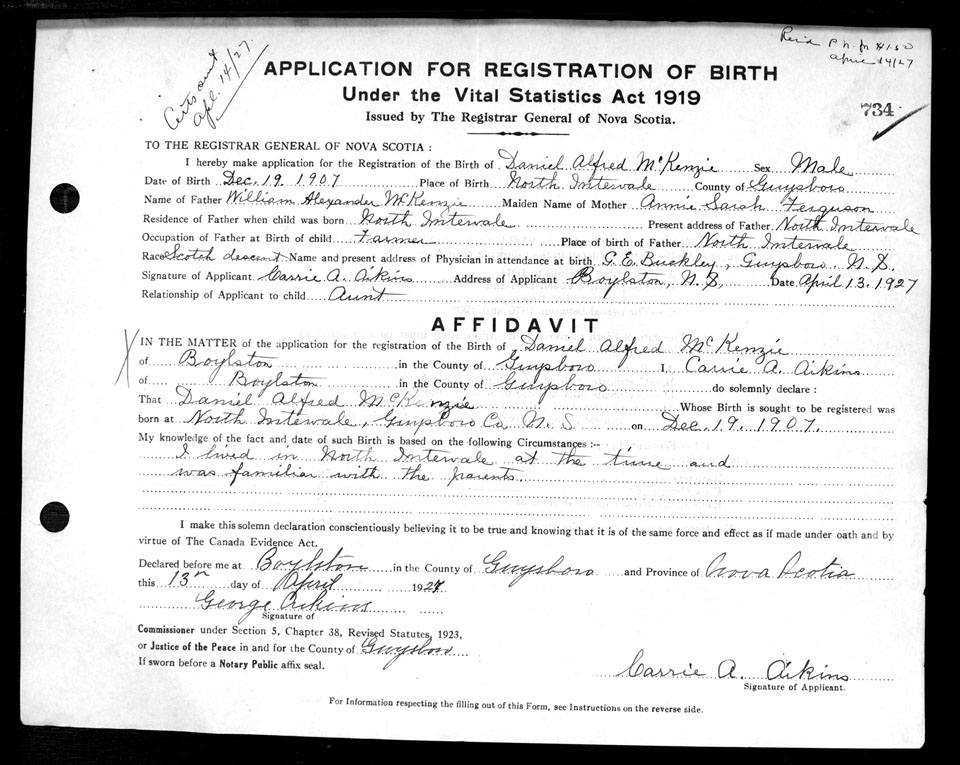 Rec'd P.N. for $1.50
April 14/27
Certs out
Apl. 14/27.
APPLICATION FOR REGISTRATION OF BIRTH
Under the Vital Statistics Act 1919
Issued by The Registrar General of Nova Scotia.
734
TO THE REGISTRAR GENERAL OF NOVA SCOTIA :
I hereby make application for the Registration of the Birth of Daniel Alfred McKenzie Sex Male
Date of Birth Dec. 19 1907 Place of Birth North Intervale County of Guysboro
Name of Father William Alexander McKenzie Maiden Name of Mother Annie Sarah Ferguson
Residence of Father when child was born North Intervale Present address of Father North Intervale
Occupation of Father at Birth of child Farmer Place of birth of Father North Intervale
Race Scotch descent Name and present address of Physician in attendance at birth G. E. Buckley, Guysboro, N. S.
Signature of Applicant Carrie A. Aikins Address of Applicant Boylston, N. S, Date April 13, 1927
Relationship of Applicant to child Aunt
AFFIDAVIT
IN THE MATTER of the application for the registration of the Birth of Daniel Alfred McKenzie
of Boylston in the County of Guysboro I, Carrie A. Aikins
of Boylston in the County of Guysboro do solemnly declare :
That Daniel Alfred McKenzie Whose Birth is sought to be registered was
born at North Intervale, Guysboro Co. N. S on Dec. 19. 1907.
My knowledge of the fact and date of such Birth is based on the following Circumstances :--
I lived in North Intervale at the time and
was familiar with the parents.
I make this solemn declaration conscientiously believing it to be true and knowing that it is of the same force and effect as if made under oath and by
virtue of The Canada Evidence Act.
Declared before me at Boylston in the County of Guysboro and Province of Nova Scotia
this 13th day of April 1927
George Aikins
Signature of
Commissioner under Section 5, Chapter 38, Revised Statutes, 1923,
or Justice of the Peace in and for the County of Guysboro
If sworn before a Notary Public affix seal.
Carrie A. Aikins
Signature of Applicant.
For Information respecting the filling out of this Form, see Instructions on the reverse side.